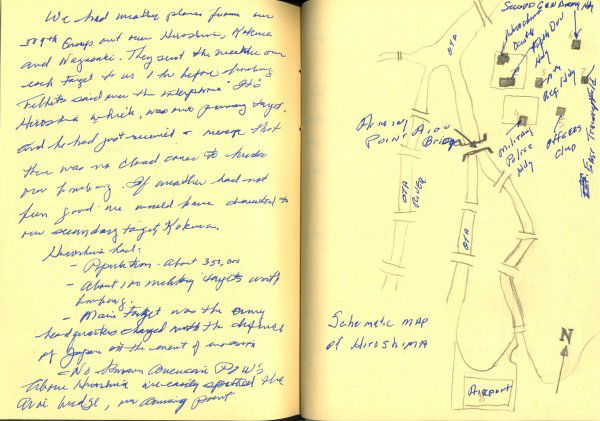 We had weather planes from our
509th Group out over Hiroshima, Kokura
and Nagasaki. They sent the weather over
each target to us 1 hr before bombing
Tibbets said over the interphone "It's
Hiroshima" which, was our primary target.
and he had just received a message that
there was no cloud cover to hinder
our bombing. If weather had not
been good we would have diverted to
our secondary target, Kokura.
Hiroshima had:
- Population - About 350,000
- About 100 military targets worth
bombing.
- Main target was the army
headquarters charged with the defense
of Japan in the event of invasion
- No known American POW's
Above Hiroshima we easily spotted the
Aioi bridge, our aiming point
SECOND GEN Army Hdq
Hiroshima
Castle
Div
Hdq
Hdq
Military
Police
Hdq
OFFICERS
Club
EAST Training Field
OTA
AIMING
POINT AIOI
Bridge
OTA
RIVER
OTA
Schematic MAP
of HIROSHIMA
N
AIRPORT